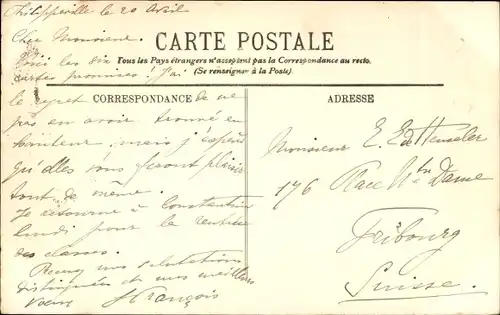 Philippeville le 20 Avril
Cher Monsieur.
Voici les six
cartes promises. J'ai
CARTE POSTALE
Tous les Pays étrangers n'acceptent pas la Correspondance au recto.
(Se renseigner à la Poste).
CORRESPONDANCE
ADRESSE
le regret de ne
pas en avoir trouvé en
hauteur, mais j'espère
qu'elles vous feront plaisir
tout de même.
Je retourne à Constantine
lundi pour la rentrée
des classes.
Recevez mes salutations
distinguées et mes meilleurs
voeux
François
Monsieur E.
176 Place N. Dame
Fribourg
Suisse.